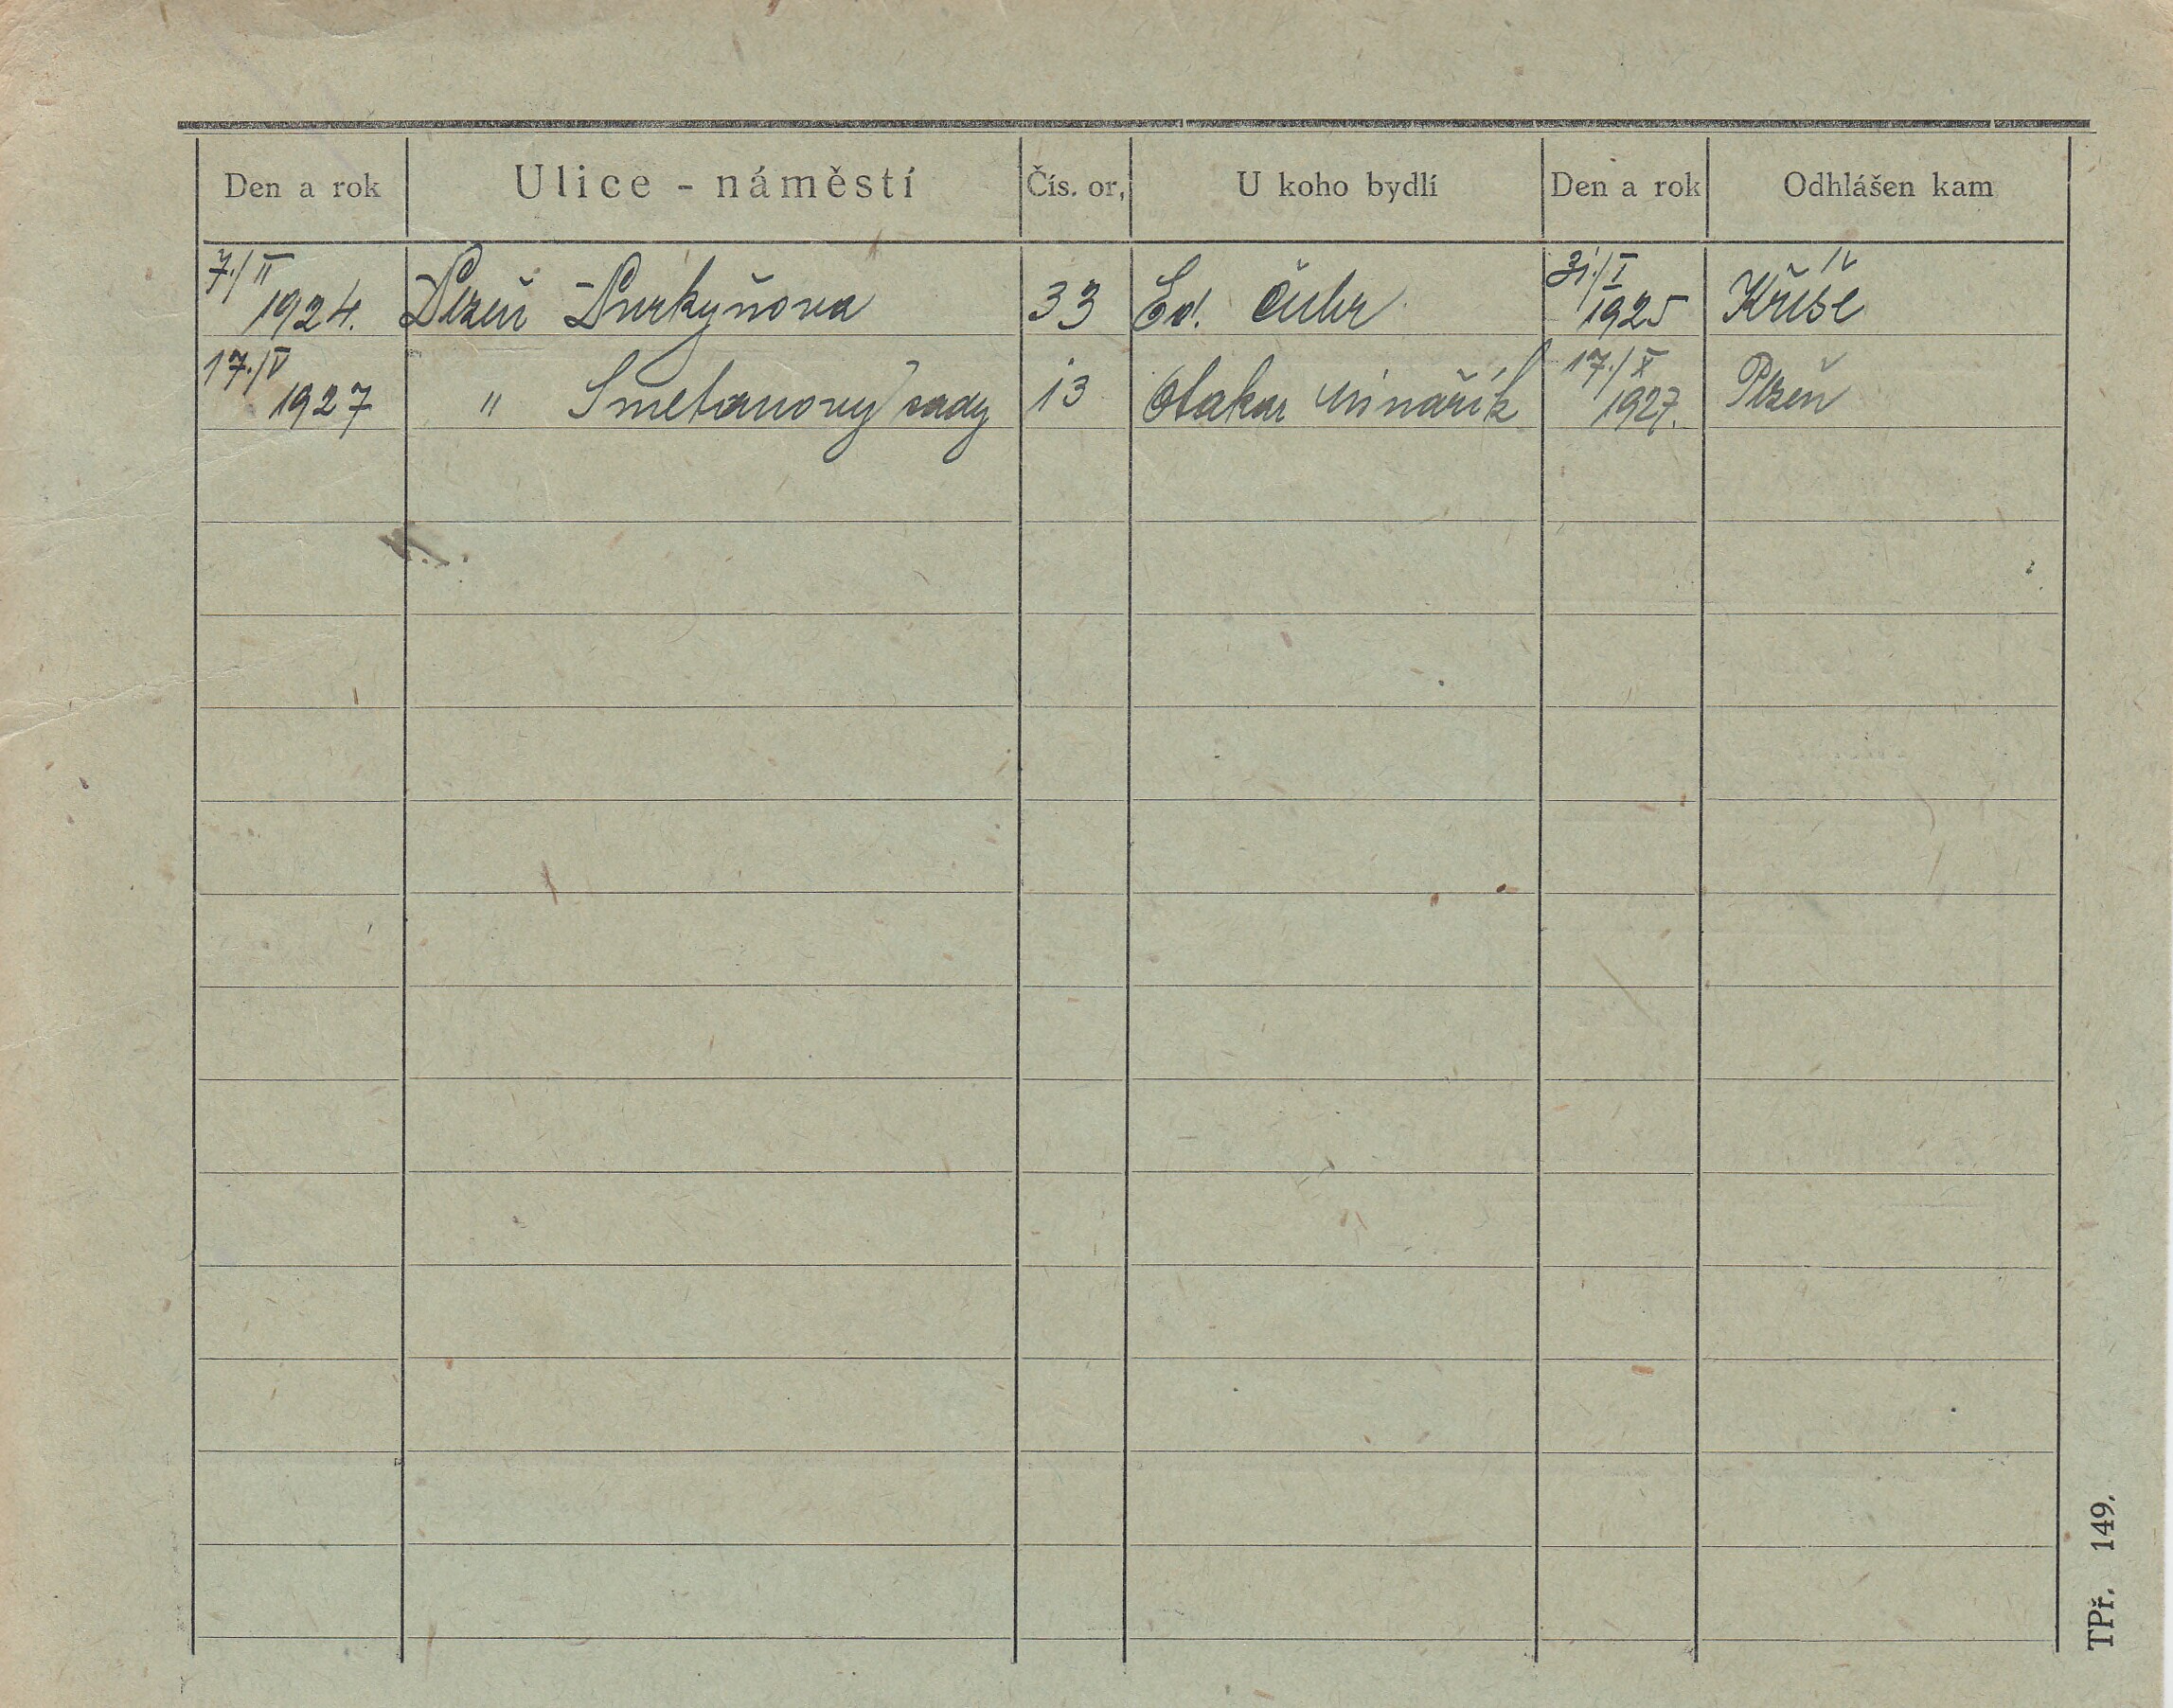 Den a rok Ulice - náměstí Čís. or. U koho bydlí Den a rok Odhlášen kam
7./II 1924. Plzeň Purkyňova 33 Ed. Čuhr 31./I 1925 Kříše
17./V 1927 " Smetanovy sady 13 Otakar Minařík 17./X 1927. Plzeň
TPř. 149.